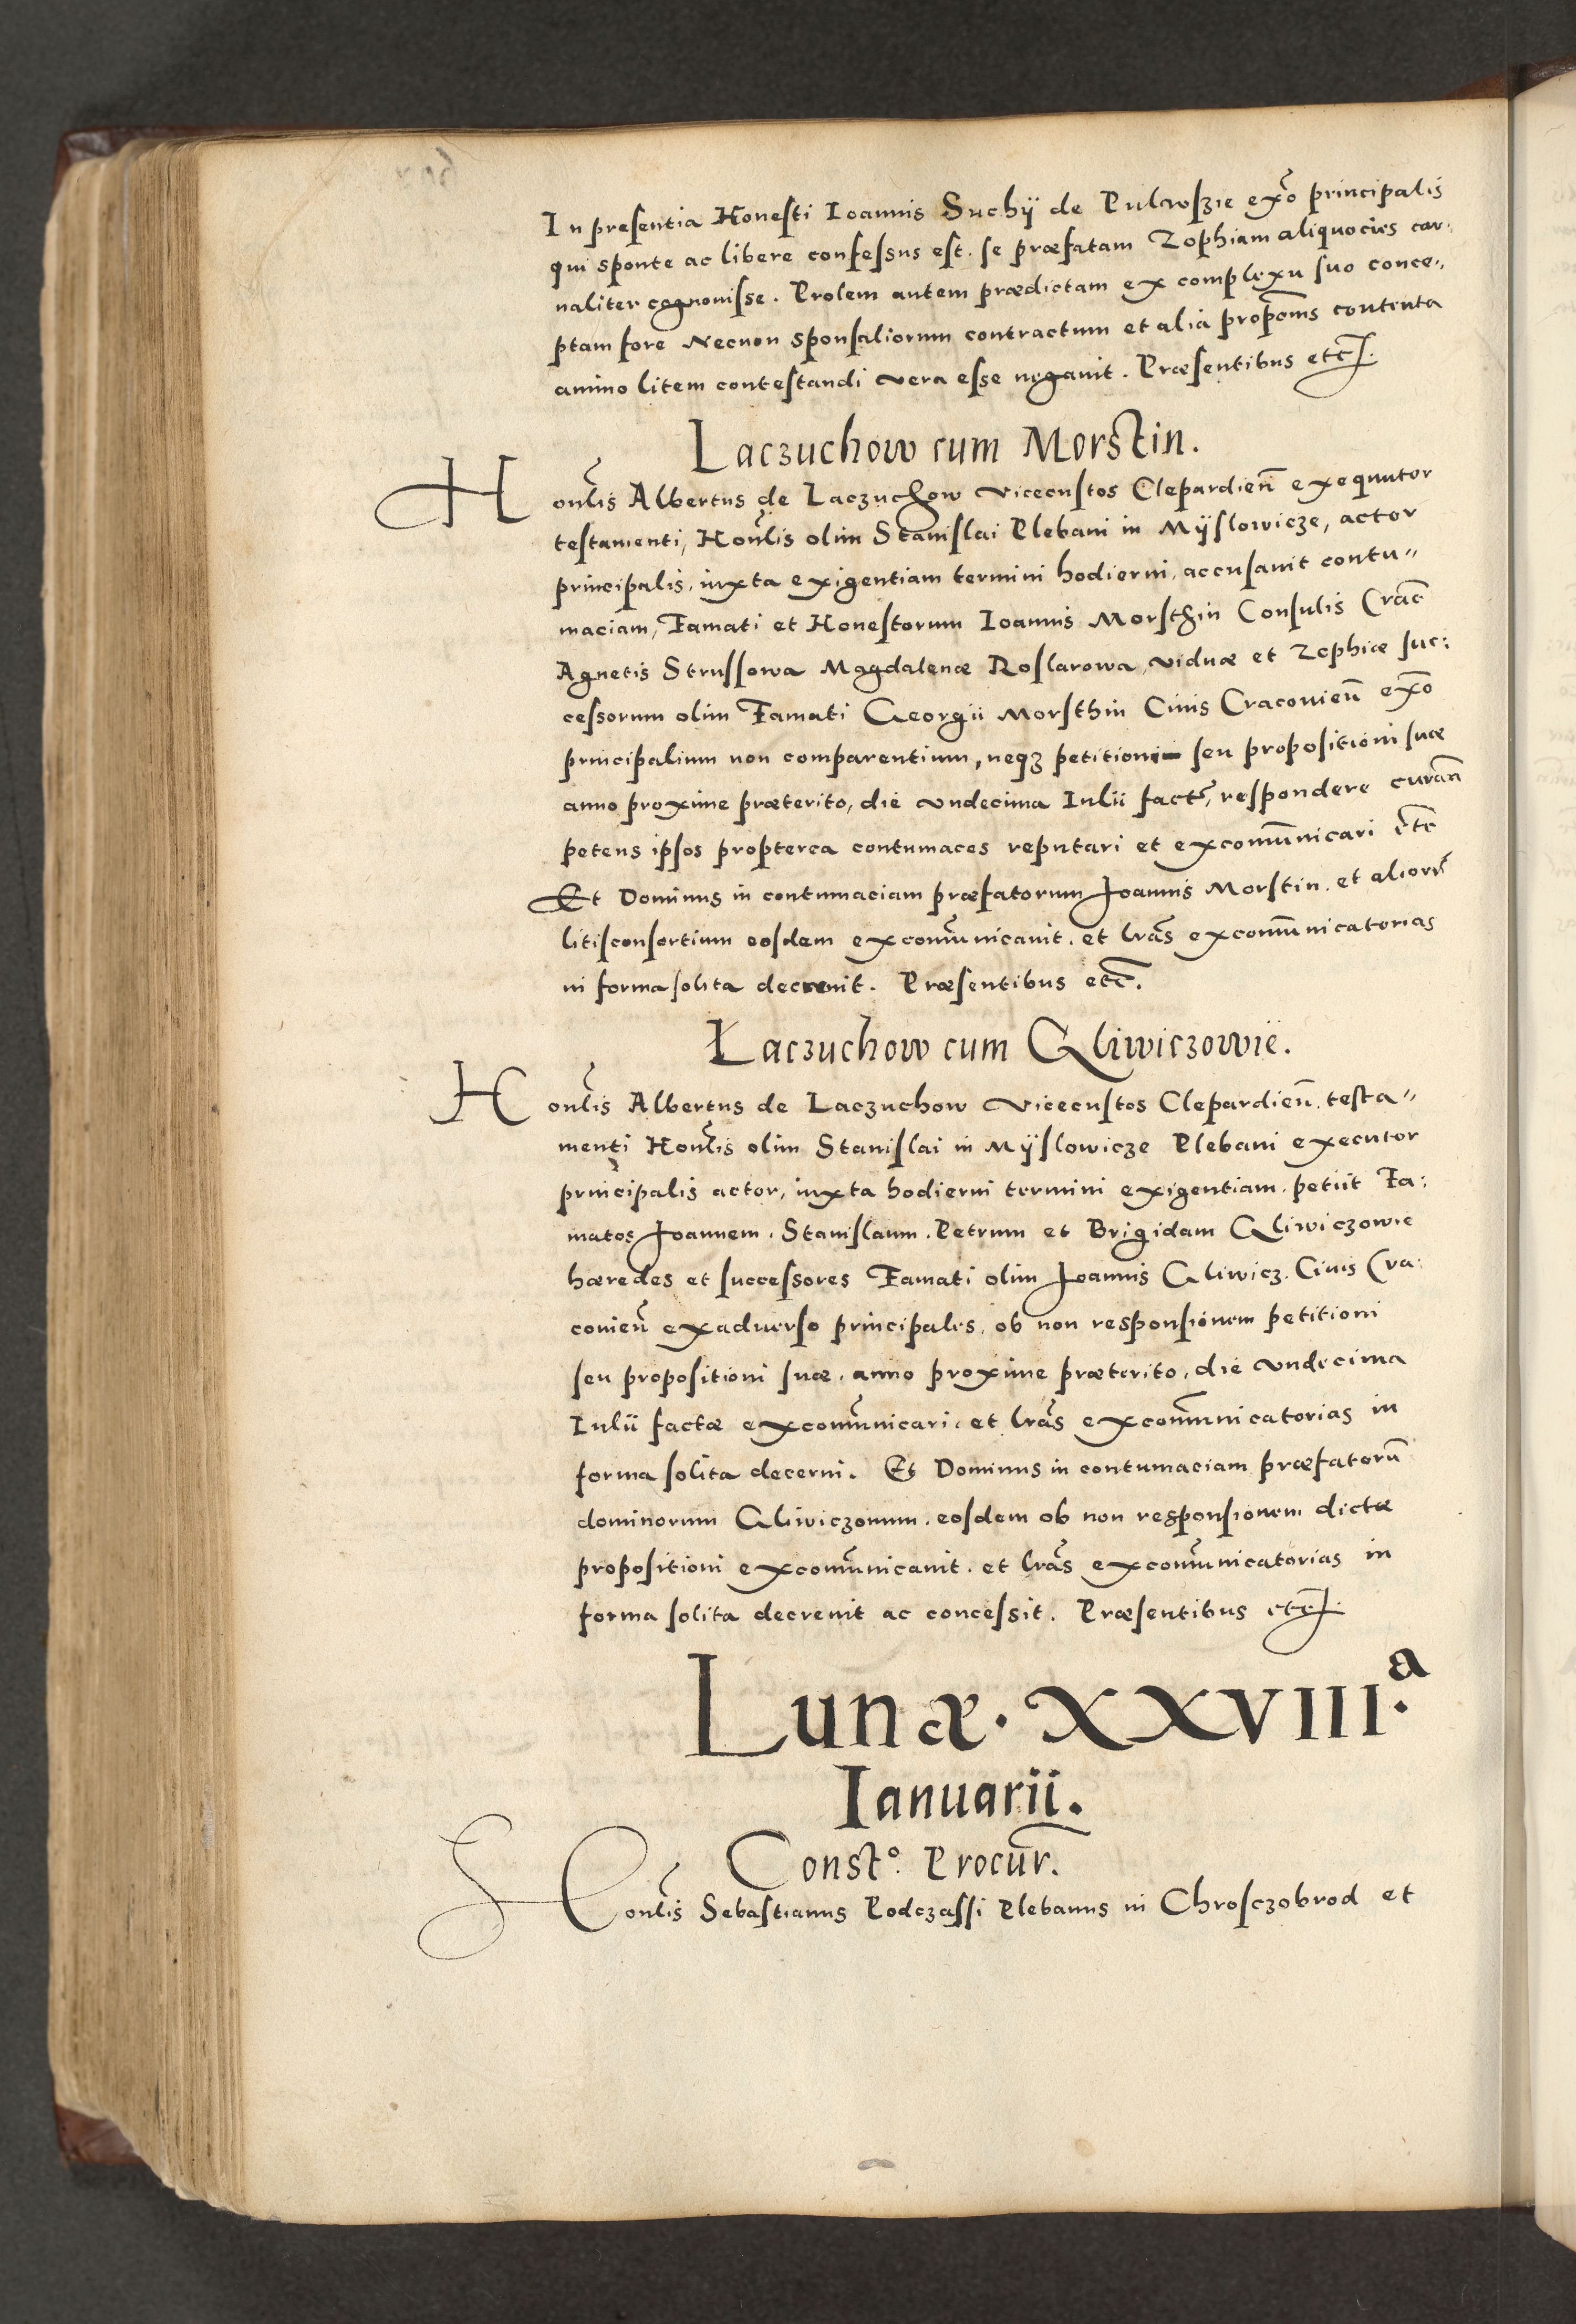 In presentia Honesti Ioannis Suchÿ de Pulwszie exõ principalis
qui sponte ac libere confessus est. se præfatam Zophiam aliquocies car,
naliter cognouisse. Prolem autem prædictam ex complexu suo conce„
ptam fore Necnon sponsaliorum contractum et alia propõnis contenta
animo litem contestandi vera esse negauit. Præsentibus etc̃.
Laczuchow cum Morstin.
Honl̃is Albertus de Laczuchow Vicecustos Clepardień exequutor
testamenti, Honl̃is olim Stanislai Plebani in Mÿslowicze, actor
principalis, iuxta exigentiam termini hodierni, accusauit contu„
maciam, Famati et Honestorum Ioannis Morsthin Consulis Crac̃
Agnetis Strussowa Magdalenæ Roslarowa, viduæ et Zophiæ suc:
cessorum olim Famati Georgii Morsthin Ciuis Cracouień exõ
principalium non comparentium, neqꝫ petitioni seu propositioni suæ
anno proxime præterito, die vndecima Iulii fact̃, respondere curań
petens ipsos propterea contumaces reputari et excom̃unicari etc̃
Et Dominus in contumaciam præfatorum Ioannis Morstin. et alior̃
litisconsortium eosdem excom̃unicauit. et l̃ras excom̃unicatorias
in forma solita decreuit. Præsentibus etc̃.
Łaczuchow cum Gliwiczowie.
Honl̃is Albertus de Laczuchow Vicecustos Clepardień. testa„
menti Honl̃is olim Stanislai in Mÿslowicze Plebani executor
principalis actor, iuxta hodierni termini exigentiam. petiit Fa:
matos Ioannem. Stanislaum. Petrum et Brigidam Gliwiczowie
hæredes et successores Famati olim Ioannis Gliwicz. Ciuis Cra:
couień exaduerso principales, ob non responsionem petitioni
seu propositioni suæ. anno proxime præterito, die vndecima
Iulii factæ excom̃unicari. et l̃ras excom̃unicatorias in
forma solita decerni. Et Dominus in contumaciam præfatorũ
dominorum Gliwiczouum. eosdem ob non responsionem dictæ
propositioni excom̃unicauit. et l̃ras excom̃unicatorias in
forma solita decreuit ac concessit. Præsentibus etc̃.
Lunæ. XXVIII.ᵃ
Ianuarii.
Const.º Procur̃.
Honl̃is Sebastianus Podczassi Plebanus in Chrosczobrod et